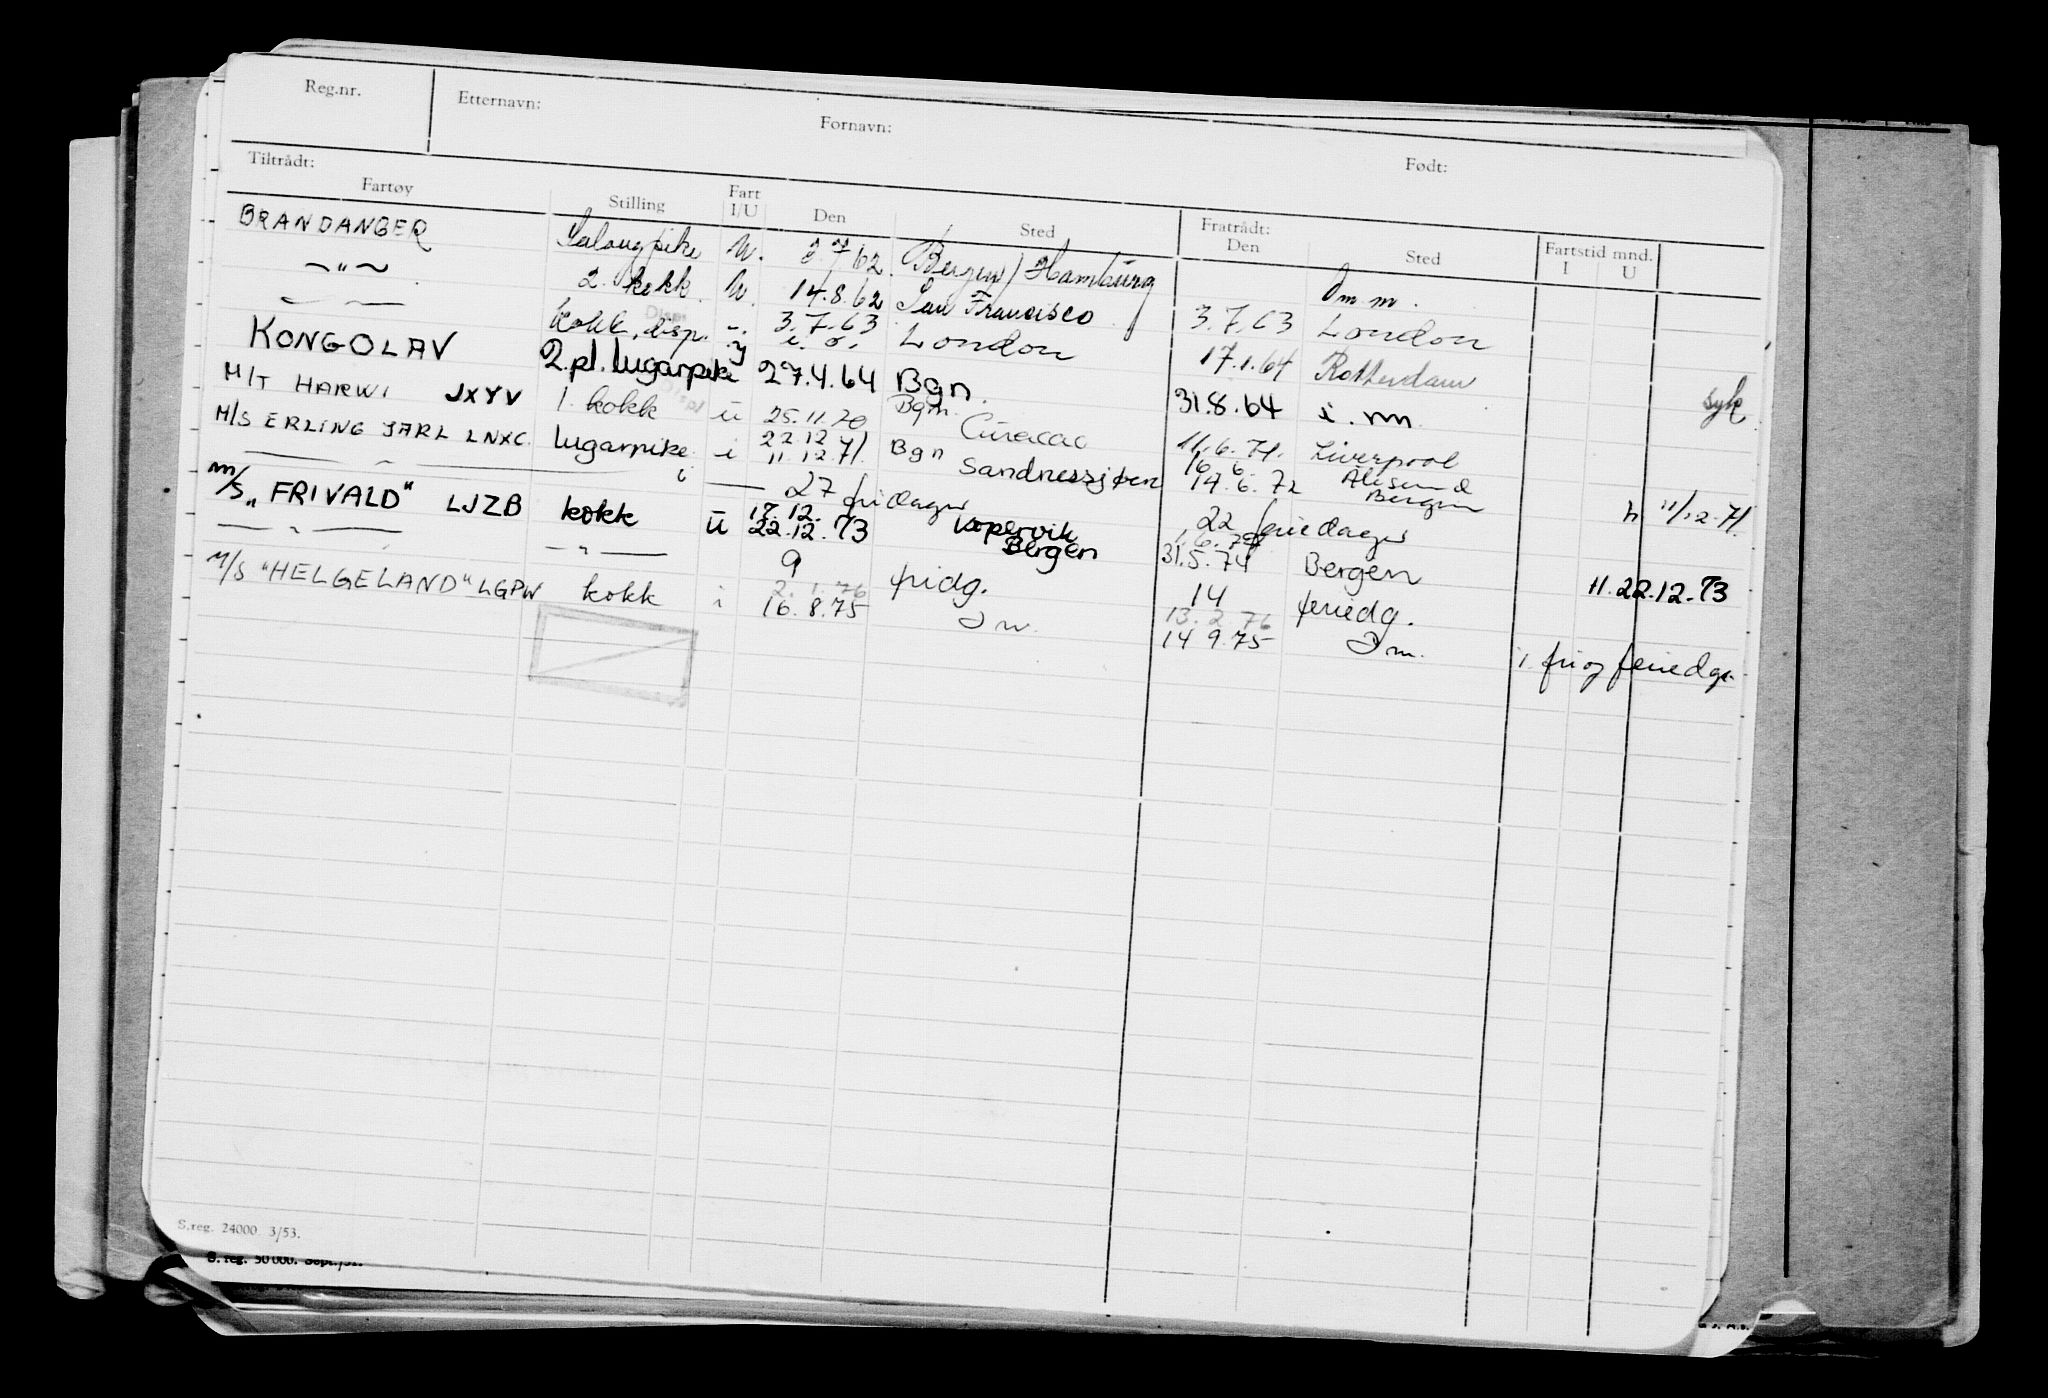 Reg.nr. Etternavn: Fornavn: Født:
Tiltrådt: Fratrådt:
Fartøy Stilling Fart I/U Den Sted Den Sted Fartstid mnd. I U
BRANDANGER Salongpike U. 3 7 62 Bergen / Hamburg Im.m.
— " — 2. kokk U. 14.8.62 San Francisco 3.7.63 London
— — Kokk, disp. -. 3.7.63 London 17.1.64 Rotterdam syk
KONGOLAV 2.pl. lugarpike y 27.4.64 Bgn. 31.8.64 i.m.
M/T HARWI JXYV 1. kokk ü 25.11.70 Bgn. Curacao 11.6.71. Liverpool
M/S ERLING JARL LNXC. lugarpike i 22.12 11.12.71. Bgn Sandnessjøen 16.6. 14.6.72 Ålesund Bergen h 11/12.71.
— " — i — 27 fridager 22 feriedager
M/S „FRIVALD" LJZB kokk ü 17.12. 22.12.73 Kopervik Bergen 1.6.74 31.5.74 Bergen 11.22.12.73
— " — — " — 9 fridg. 14 feriedg.
M/S "HELGELAND" LGPW kokk i 2.1.76 16.8.75 Im. 13.2.76 14 9.75 Im. i fri og feriedgr.
S.reg. 24000 3/53.
S. reg. 50 000. Sept./51.